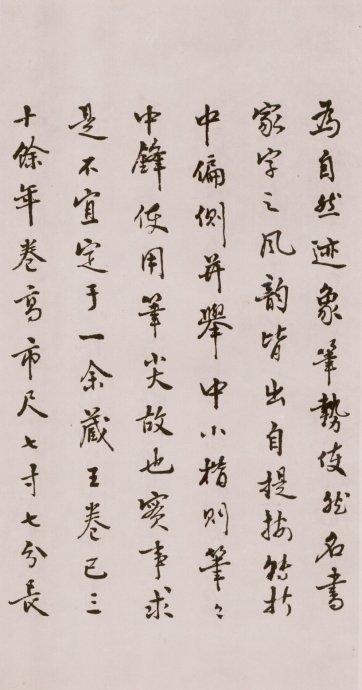 為自然迹象筆勢使然名書
家字之風韵皆出自提按轉折
中偏側并舉中小楷則筆〻
中鋒使用筆尖故也實事求
是不宜定于一余藏王卷已三
十餘年卷高市尺七寸七分長